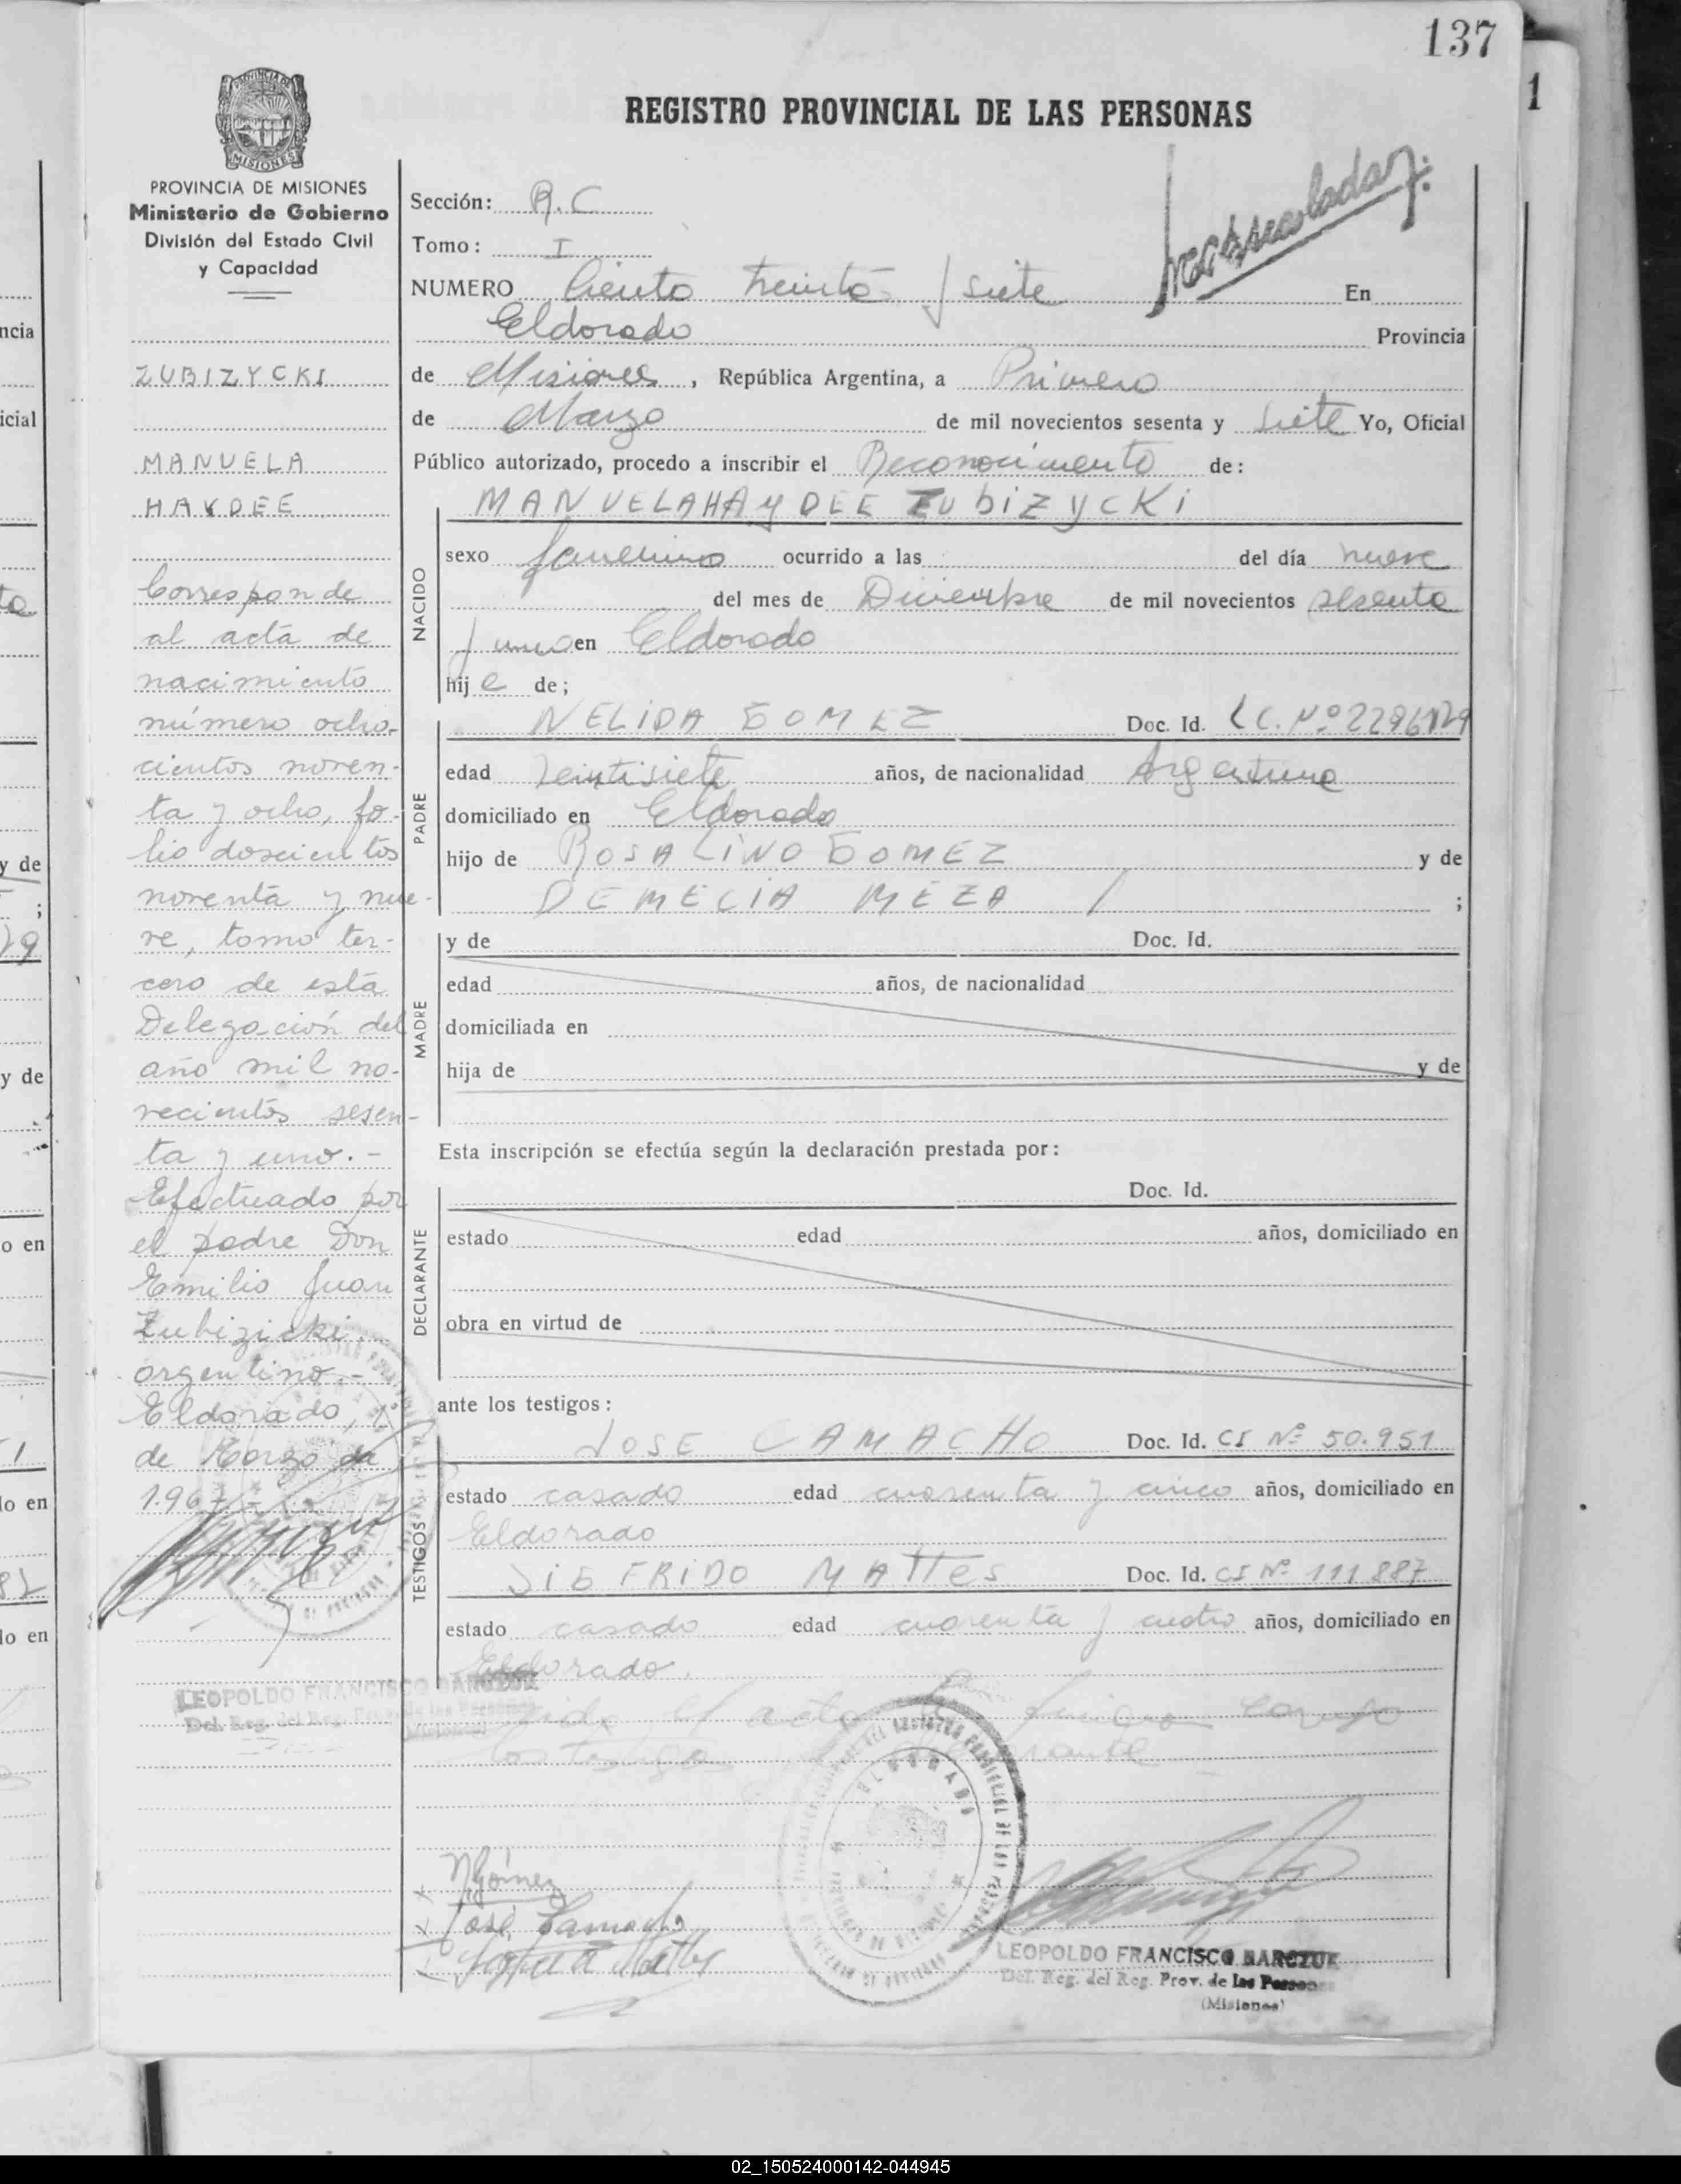 137
1
REGISTRO PROVINCIAL DE LAS PERSONAS
MISIONES
PROVINCIA DE MISIONES
Ministerio de Gobierno
División del Estado Civil
y Capacidad
ZUBIZYCKI
MANUELA
HAYDEE
Corresponde
al acta de
nacimiento
número ocho-
cientos noven-
ta y ocho, fo-
lio doscientos
noventa y nue-
ve, tomo ter-
cero de esta
Delegación del
año mil no-
vecientos sesen-
ta y uno.-
Efectuado por
el padre Don
Emilio Juan
Zubizicki.
argentino.-
Eldorado, 1°
de Marzo de
1.967.-
LEOPOLDO FRANCISCO BARCZUK
Del. Reg. del Reg. Prov. de las Personas
(Misiones)
Sección: R.C
Tomo: I
NUMERO Ciento treinta y siete En
Eldorado Provincia
de Misiones, República Argentina, a Primero
de Marzo de mil novecientos sesenta y siete Yo, Oficial
Público autorizado, procedo a inscribir el Reconocimiento de:
MANUELA HAYDEE ZUBIZYCKI
NACIDO
sexo femenino ocurrido a las del día nueve
del mes de Diciembre de mil novecientos sesenta
y uno en Eldorado
hija de;
PADRE
NELIDA GOMEZ Doc. Id. LC. Nº
edad Veintisiete años, de nacionalidad Argentina
domiciliado en Eldorado
hijo de ROSALINO GOMEZ y de
DEMECIA MEZA ;
MADRE
y de Doc. Id.
edad años, de nacionalidad
domiciliada en
hija de y de
Esta inscripción se efectúa según la declaración prestada por:
DECLARANTE
Doc. Id.
estado edad años, domiciliado en
obra en virtud de
ante los testigos:
TESTIGOS
JOSE CAMACHO Doc. Id. CI Nº 50.951
estado casado edad cuarenta y cinco años, domiciliado en
Eldorado
SIGFRIDO MATTES Doc. Id. CI Nº 111.887
estado casado edad cuarenta y cuatro años, domiciliado en
Eldorado.
el acta firman conmigo
los testigos
ELDORADO
NGómez
José Camacho
LEOPOLDO FRANCISCO BARCZUK
Del. Reg. del Reg. Prov. de las Personas
(Misiones)
02_150524000142-044945